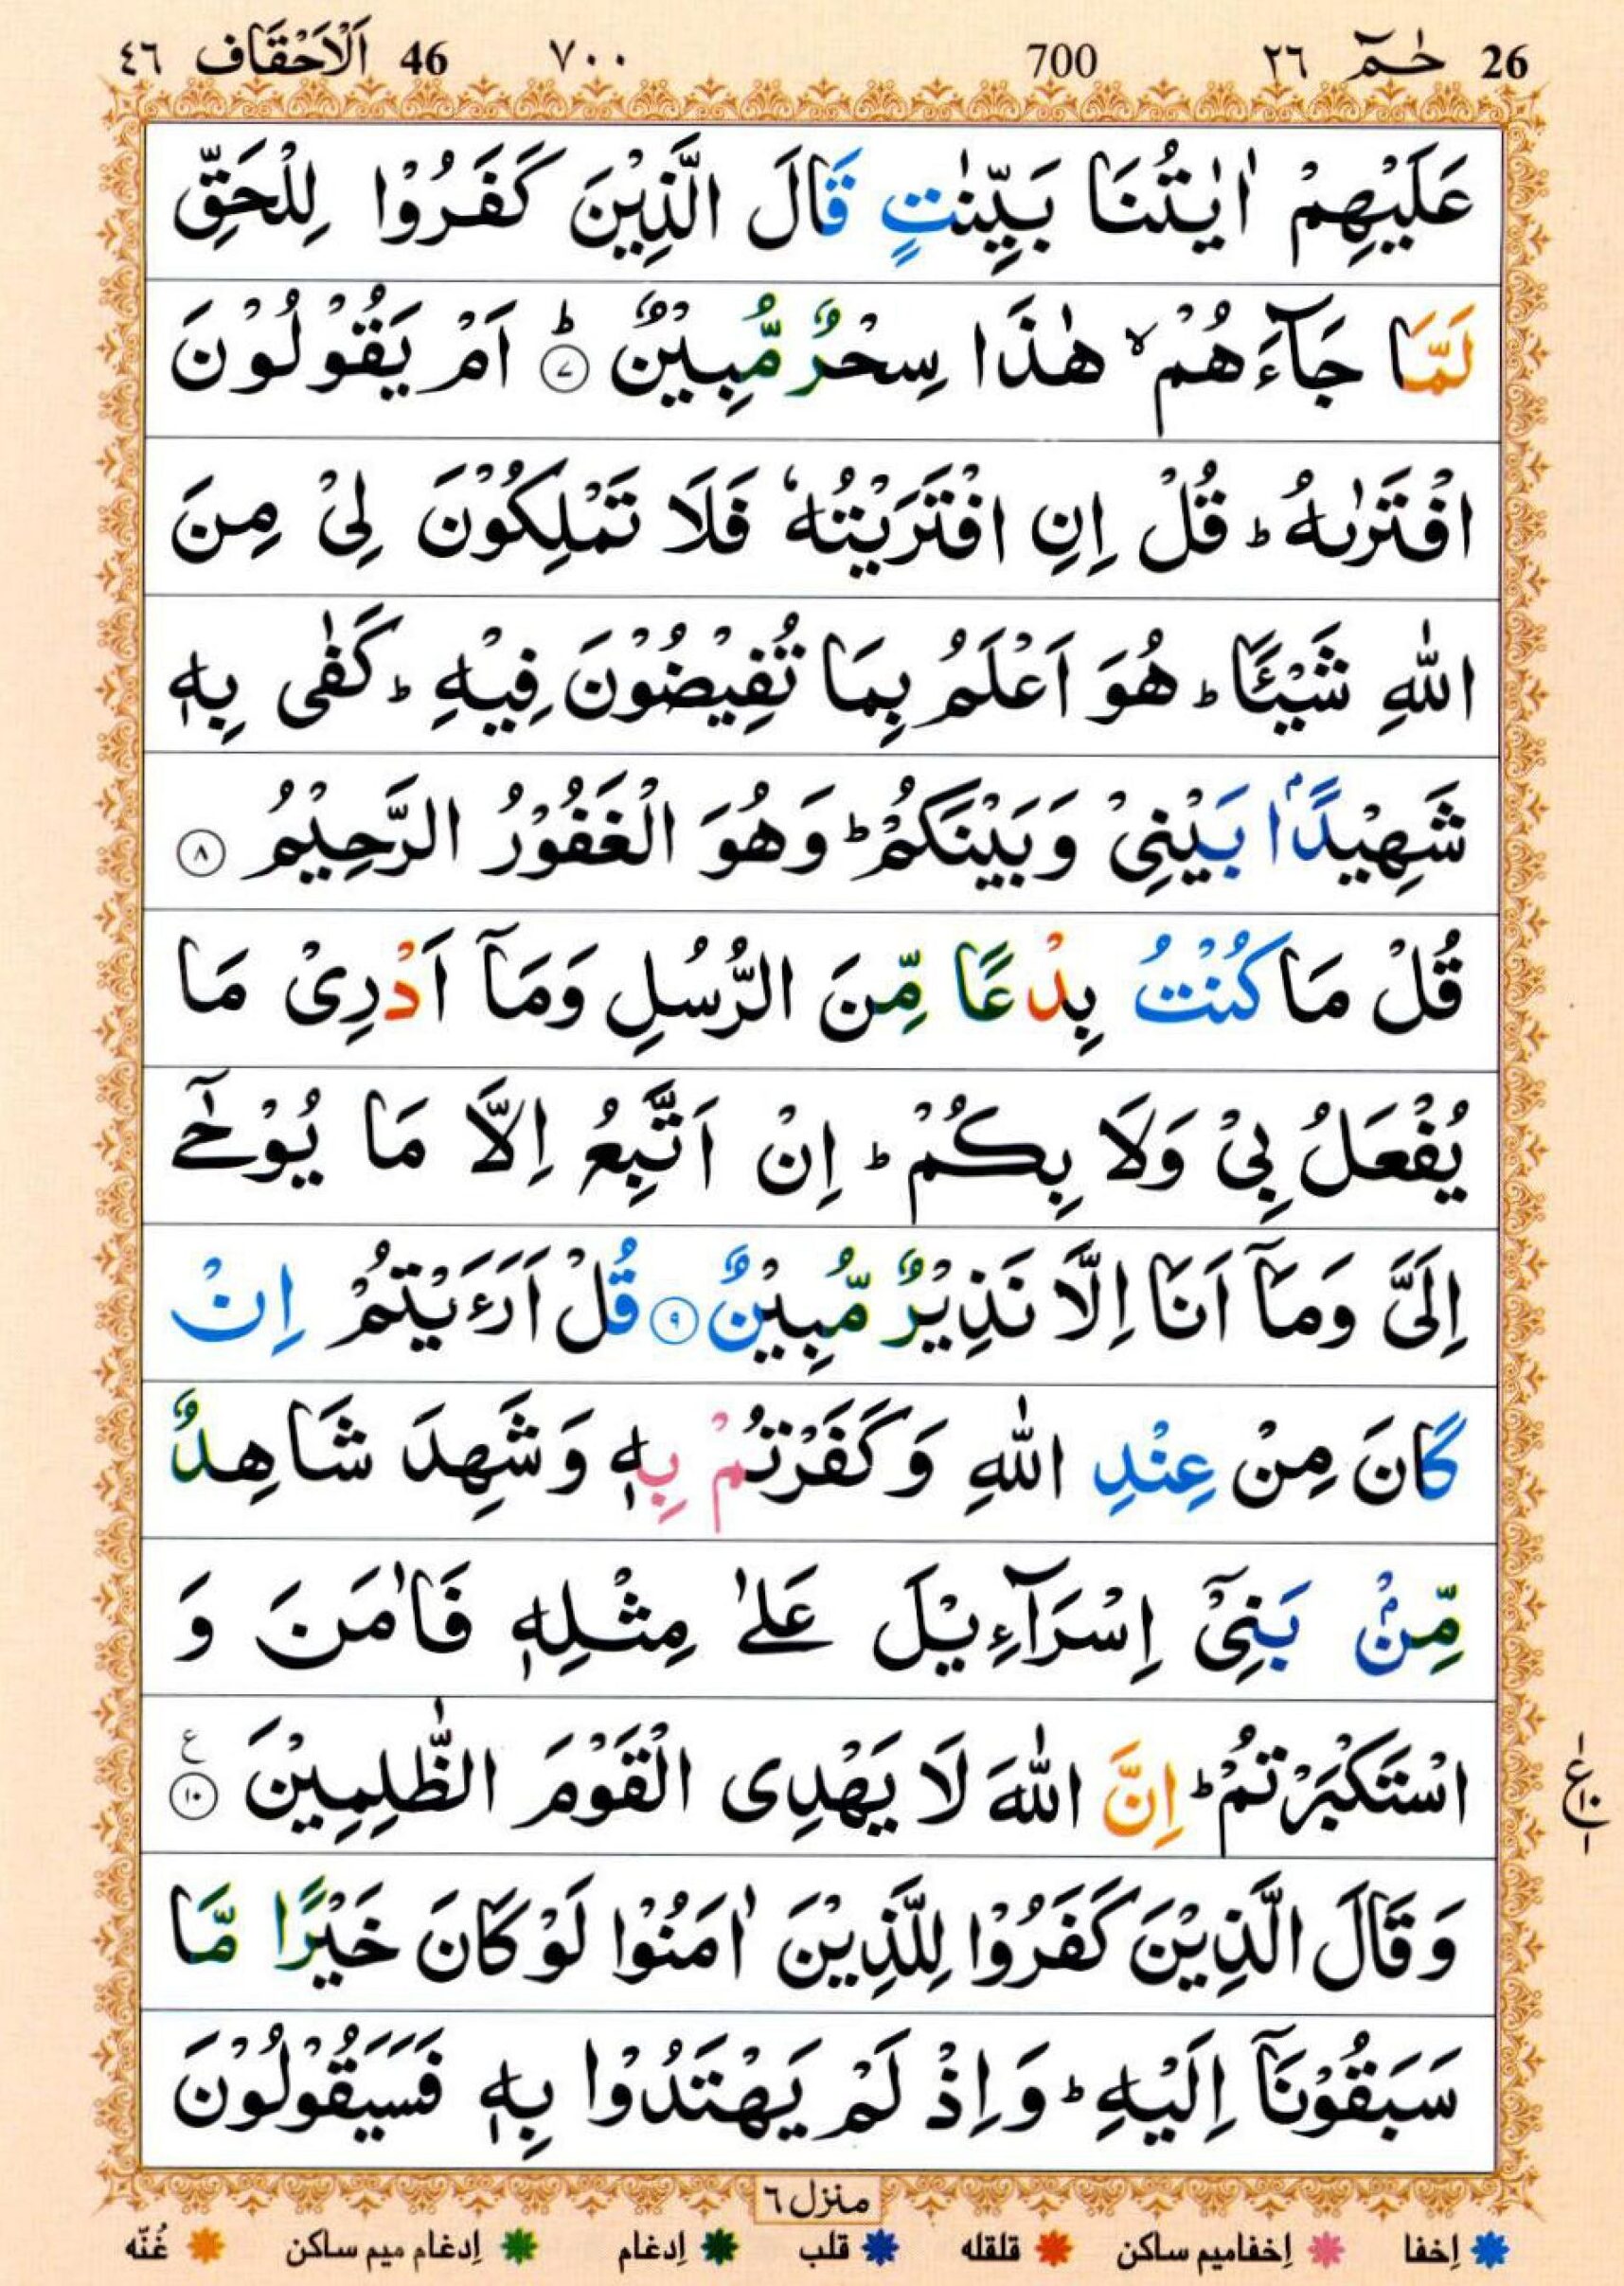 26 حٰمٓ ٢٦ 700 ٧٠٠ 46 اَلْاَحْقَاف ٤٦
عَلَيْهِمْ اٰيٰتُنَا بَيِّنٰتٍ قَالَ الَّذِيْنَ كَفَرُوْا لِلْحَقِّ
لَمَّا جَآءَهُمْ ۙ هٰذَا سِحْرٌ مُّبِيْنٌ ؕ ۷ اَمْ يَقُوْلُوْنَ
افْتَرٰىهُ ؕ قُلْ اِنِ افْتَرَيْتُهٗ فَلَا تَمْلِكُوْنَ لِیْ مِنَ
اللّٰهِ شَيْـًٔا ؕ هُوَ اَعْلَمُ بِمَا تُفِيْضُوْنَ فِيْهِ ؕ كَفٰى بِهٖ
شَهِيْدًۢا بَيْنِیْ وَبَيْنَكُمْ ؕ وَهُوَ الْغَفُوْرُ الرَّحِيْمُ ۸
قُلْ مَا كُنْتُ بِدْعًا مِّنَ الرُّسُلِ وَمَاۤ اَدْرِیْ مَا
يُفْعَلُ بِیْ وَلَا بِكُمْ ؕ اِنْ اَتَّبِعُ اِلَّا مَا يُوْحٰۤى
اِلَیَّ وَمَاۤ اَنَا اِلَّا نَذِيْرٌ مُّبِيْنٌ ۹ قُلْ اَرَءَيْتُمْ اِنْ
كَانَ مِنْ عِنْدِ اللّٰهِ وَكَفَرْتُمْ بِهٖ وَشَهِدَ شَاهِدٌ
مِّنْۢ بَنِیْۤ اِسْرَآءِيْلَ عَلٰى مِثْلِهٖ فَاٰمَنَ وَ
اسْتَكْبَرْتُمْ ؕ اِنَّ اللّٰهَ لَا يَهْدِی الْقَوْمَ الظّٰلِمِيْنَ ۱۰ ع
ع ١٠ ١
وَقَالَ الَّذِيْنَ كَفَرُوْا لِلَّذِيْنَ اٰمَنُوْا لَوْ كَانَ خَيْرًا مَّا
سَبَقُوْنَاۤ اِلَيْهِ ؕ وَاِذْ لَمْ يَهْتَدُوْا بِهٖ فَسَيَقُوْلُوْنَ
منزل ٦
اِخفا اِخفامیم ساکن قلقله قلب اِدغام اِدغام میم ساکن غُنّه